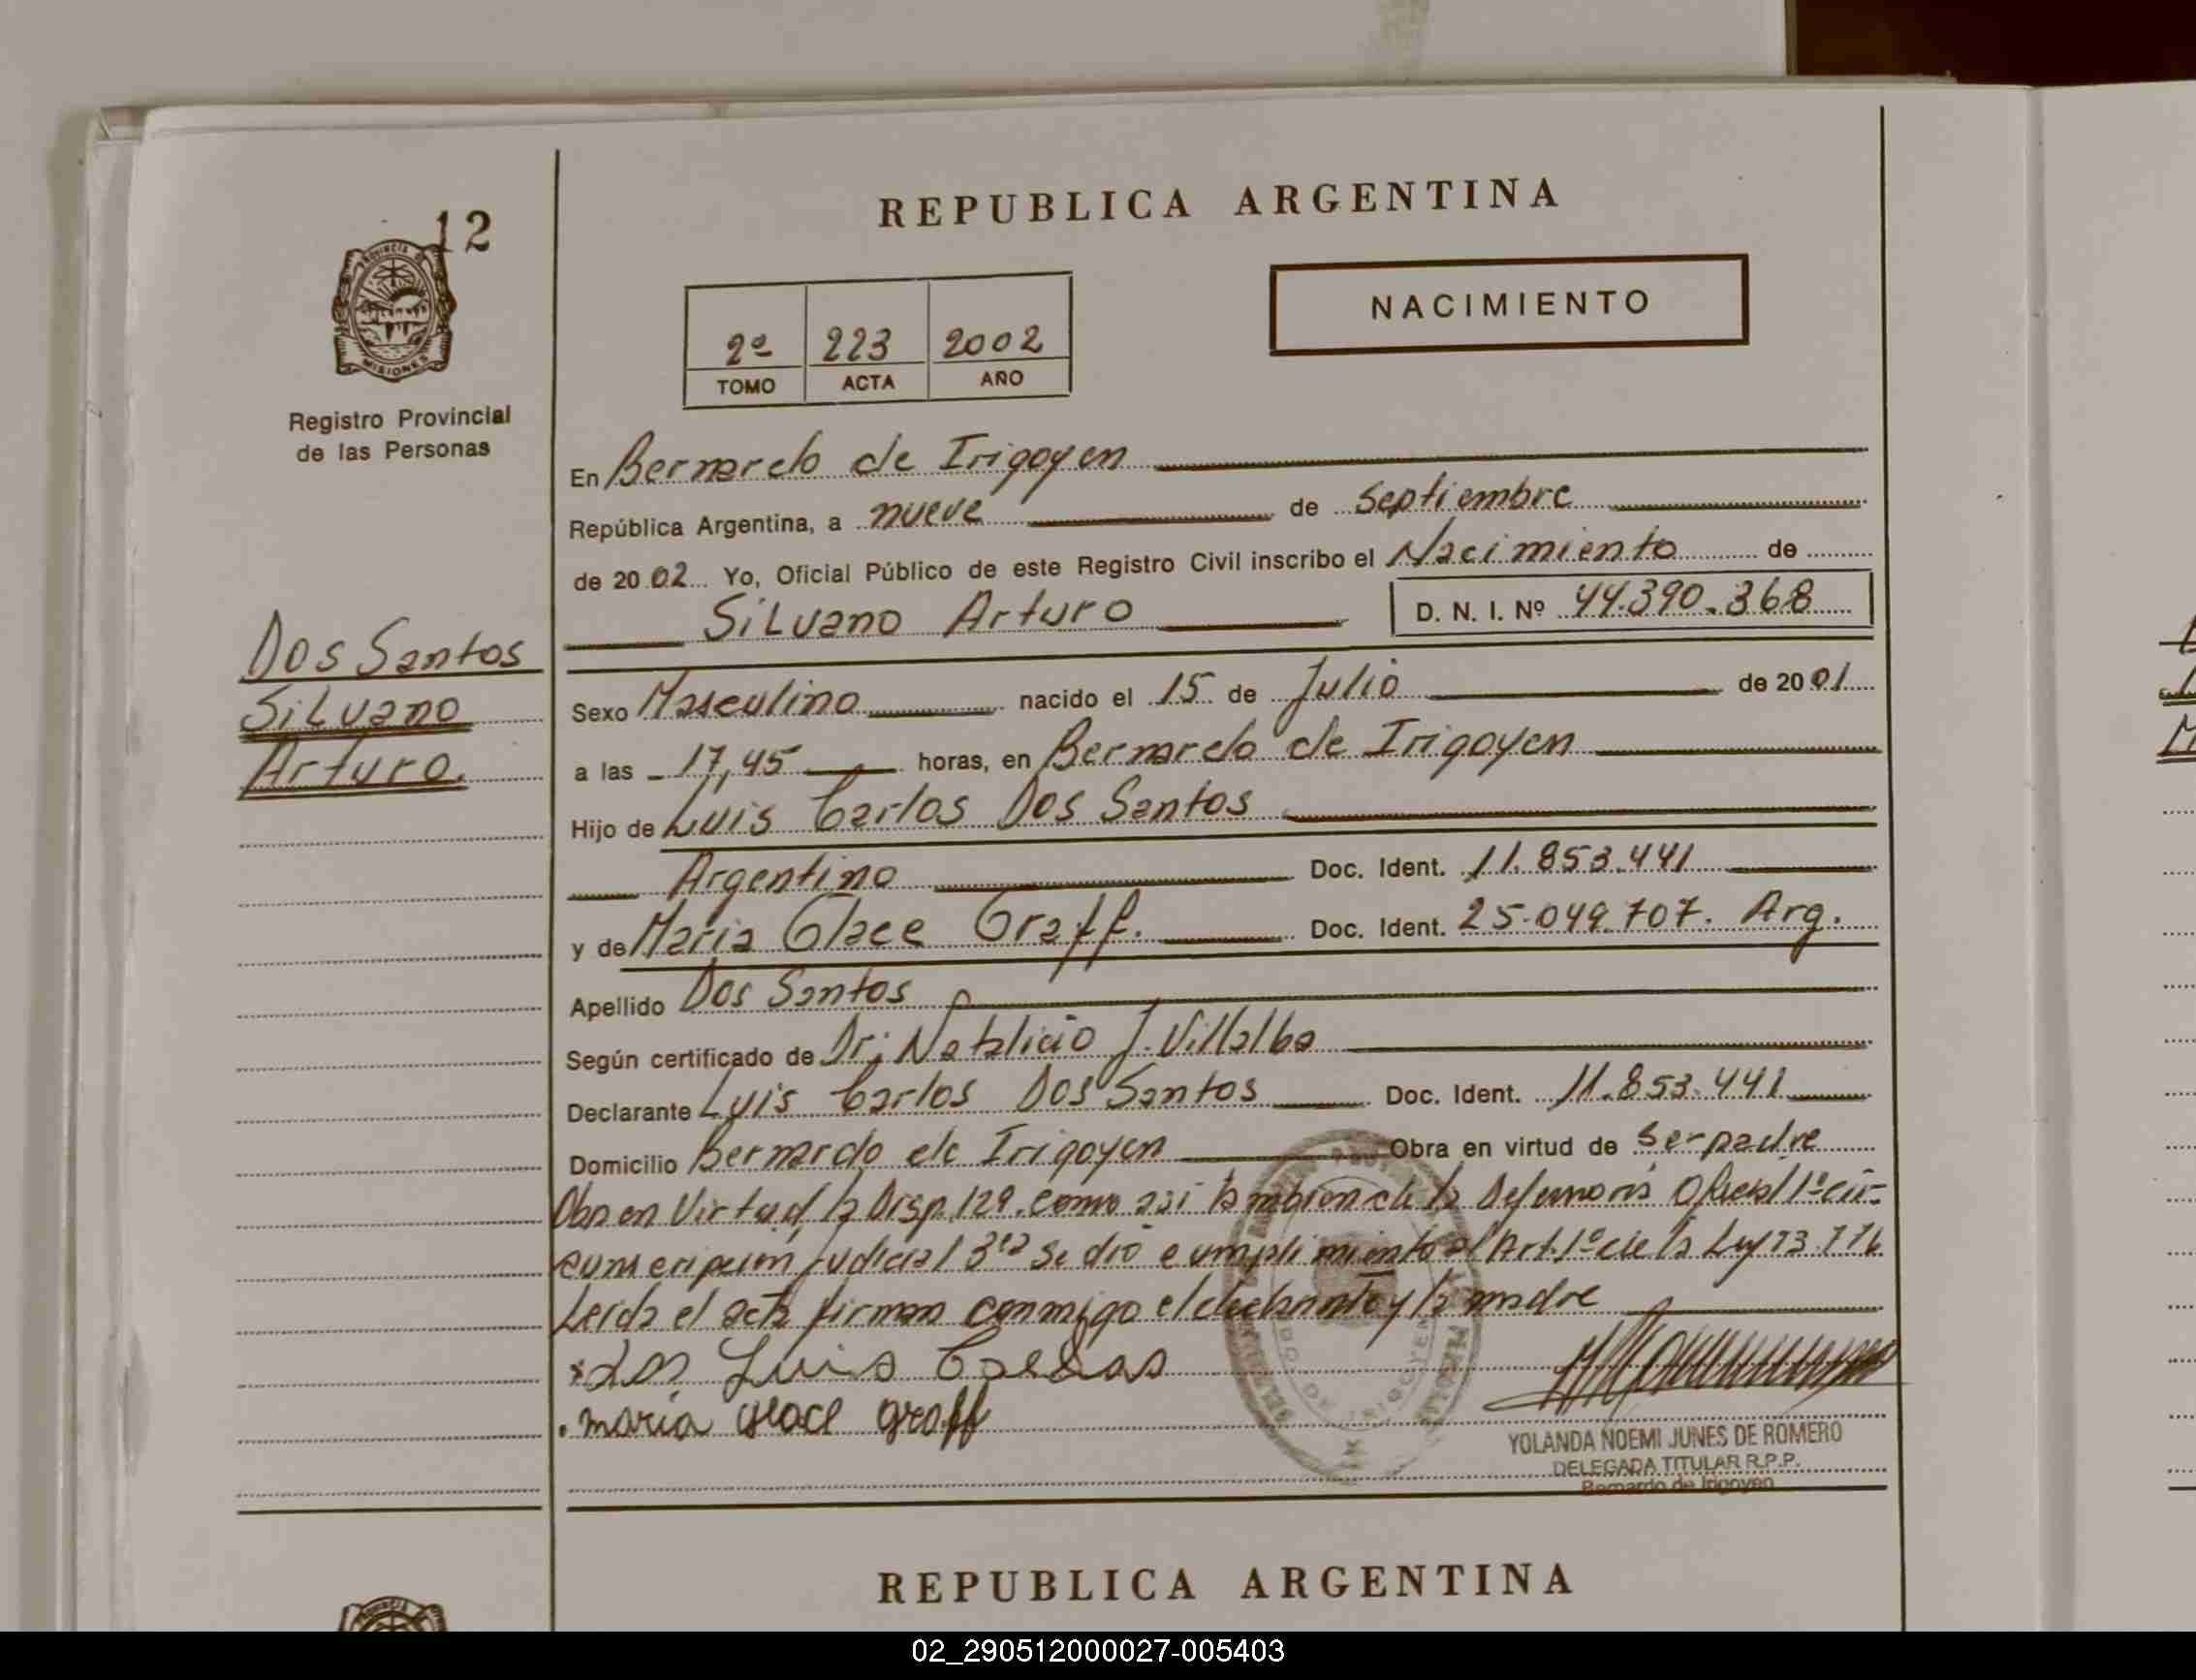 12
PROVINCIA
MISIONES
Registro Provincial
de las Personas
Dos Santos
Silvano
Arturo.
REPUBLICA ARGENTINA
NACIMIENTO
2º 223 2002
TOMO ACTA AÑO
En Bernardo de Irigoyen
República Argentina, a nueve de Septiembre
de 2002 Yo, Oficial Público de este Registro Civil inscribo el Nacimiento de
Silvano Arturo D. N. I. Nº 44.390.368
Sexo Masculino nacido el 15 de Julio de 2001
a las 17,45 horas, en Bernardo de Irigoyen
Hijo de Luis Carlos Dos Santos
Argentino Doc. Ident. 11.853.441
y de Maria Glace Graff. Doc. Ident. 25.049.707. Arg.
Apellido Dos Santos
Según certificado de Dr. Natalicio J. Villalba
Declarante Luis Carlos Dos Santos Doc. Ident. 11.853.441
Domicilio Bernardo de Irigoyen Obra en virtud de Ser padre
en Virtud la Disp. 129. como asi tambien de la Oficial 1º cir-
cunscripción Judicial 3ra Se dio cumplimiento al Art. 1º de la Ley
Leida el acta firman conmigo el declarante y la madre
Luis
maria glace graff
YOLANDA NOEMI JUNES DE ROMERO
DELEGADA TITULAR R.P.P.
Bernardo de Irigoyen
REPUBLICA ARGENTINA
02_290512000027-005403